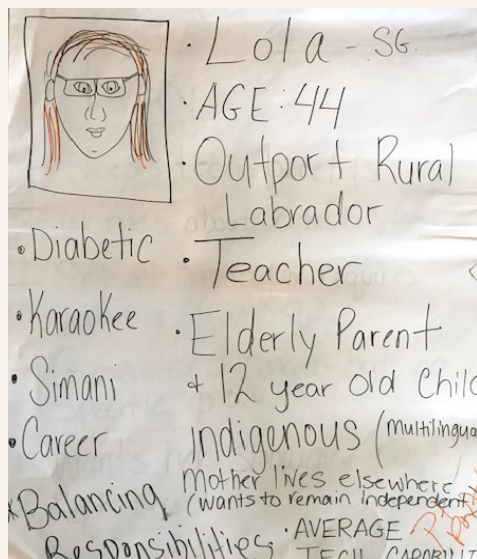 • Lola - SG.
• AGE: 44
• Outport Rural
Labrador
• Teacher
• Elderly Parent
+ 12 year old Chil
Indigenous (multilingua
Mother lives elsewhere
(wants to remain independent)
• AVERAGE
TECH CAPABILIT
• Diabetic
• Karaokee
• Simani
• Career
* Balancing
Responsibilities